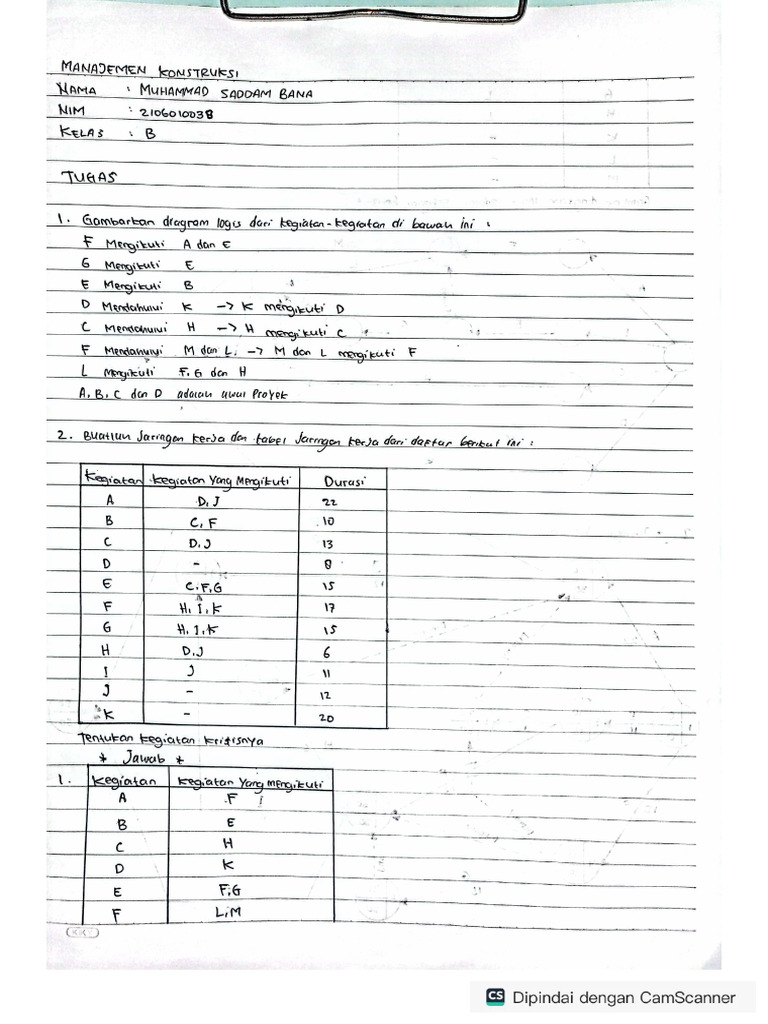 MANAJEMEN KONSTRUKSI
NAMA : MUHAMMAD SADDAM BANA
NIM : 2106010038
KELAS : B
TUGAS
1. Gambarkan diagram logis dari kegiatan-kegiatan di bawah ini :
F Mengikuti A dan E
G Mengikuti E
E Mengikuti B
D Mendahului K -> K mengikuti D
C Mendahului H -> H mengikuti C
F Mendahului M dan L. -> M dan L mengikuti F
L Mengikuti F, G dan H
A, B, C dan D adalah awal Proyek
2. Buatlah Jaringan kerja dan tabel Jaringan kerja dari daftar berikut ini :
Kegiatan Kegiatan Yang Mengikuti Durasi
A D, J 22
B C, F 10
C D, J 13
D - 8
E C, F, G 15
F H, I, K 17
G H, I, K 15
H D, J 6
I J 11
J - 12
K - 20
Tentukan kegiatan kritisnya
* Jawab *
1. Kegiatan Kegiatan Yang mengikuti
A F
B E
C H
D K
E F, G
F L, M
KKY
CS Dipindai dengan CamScanner